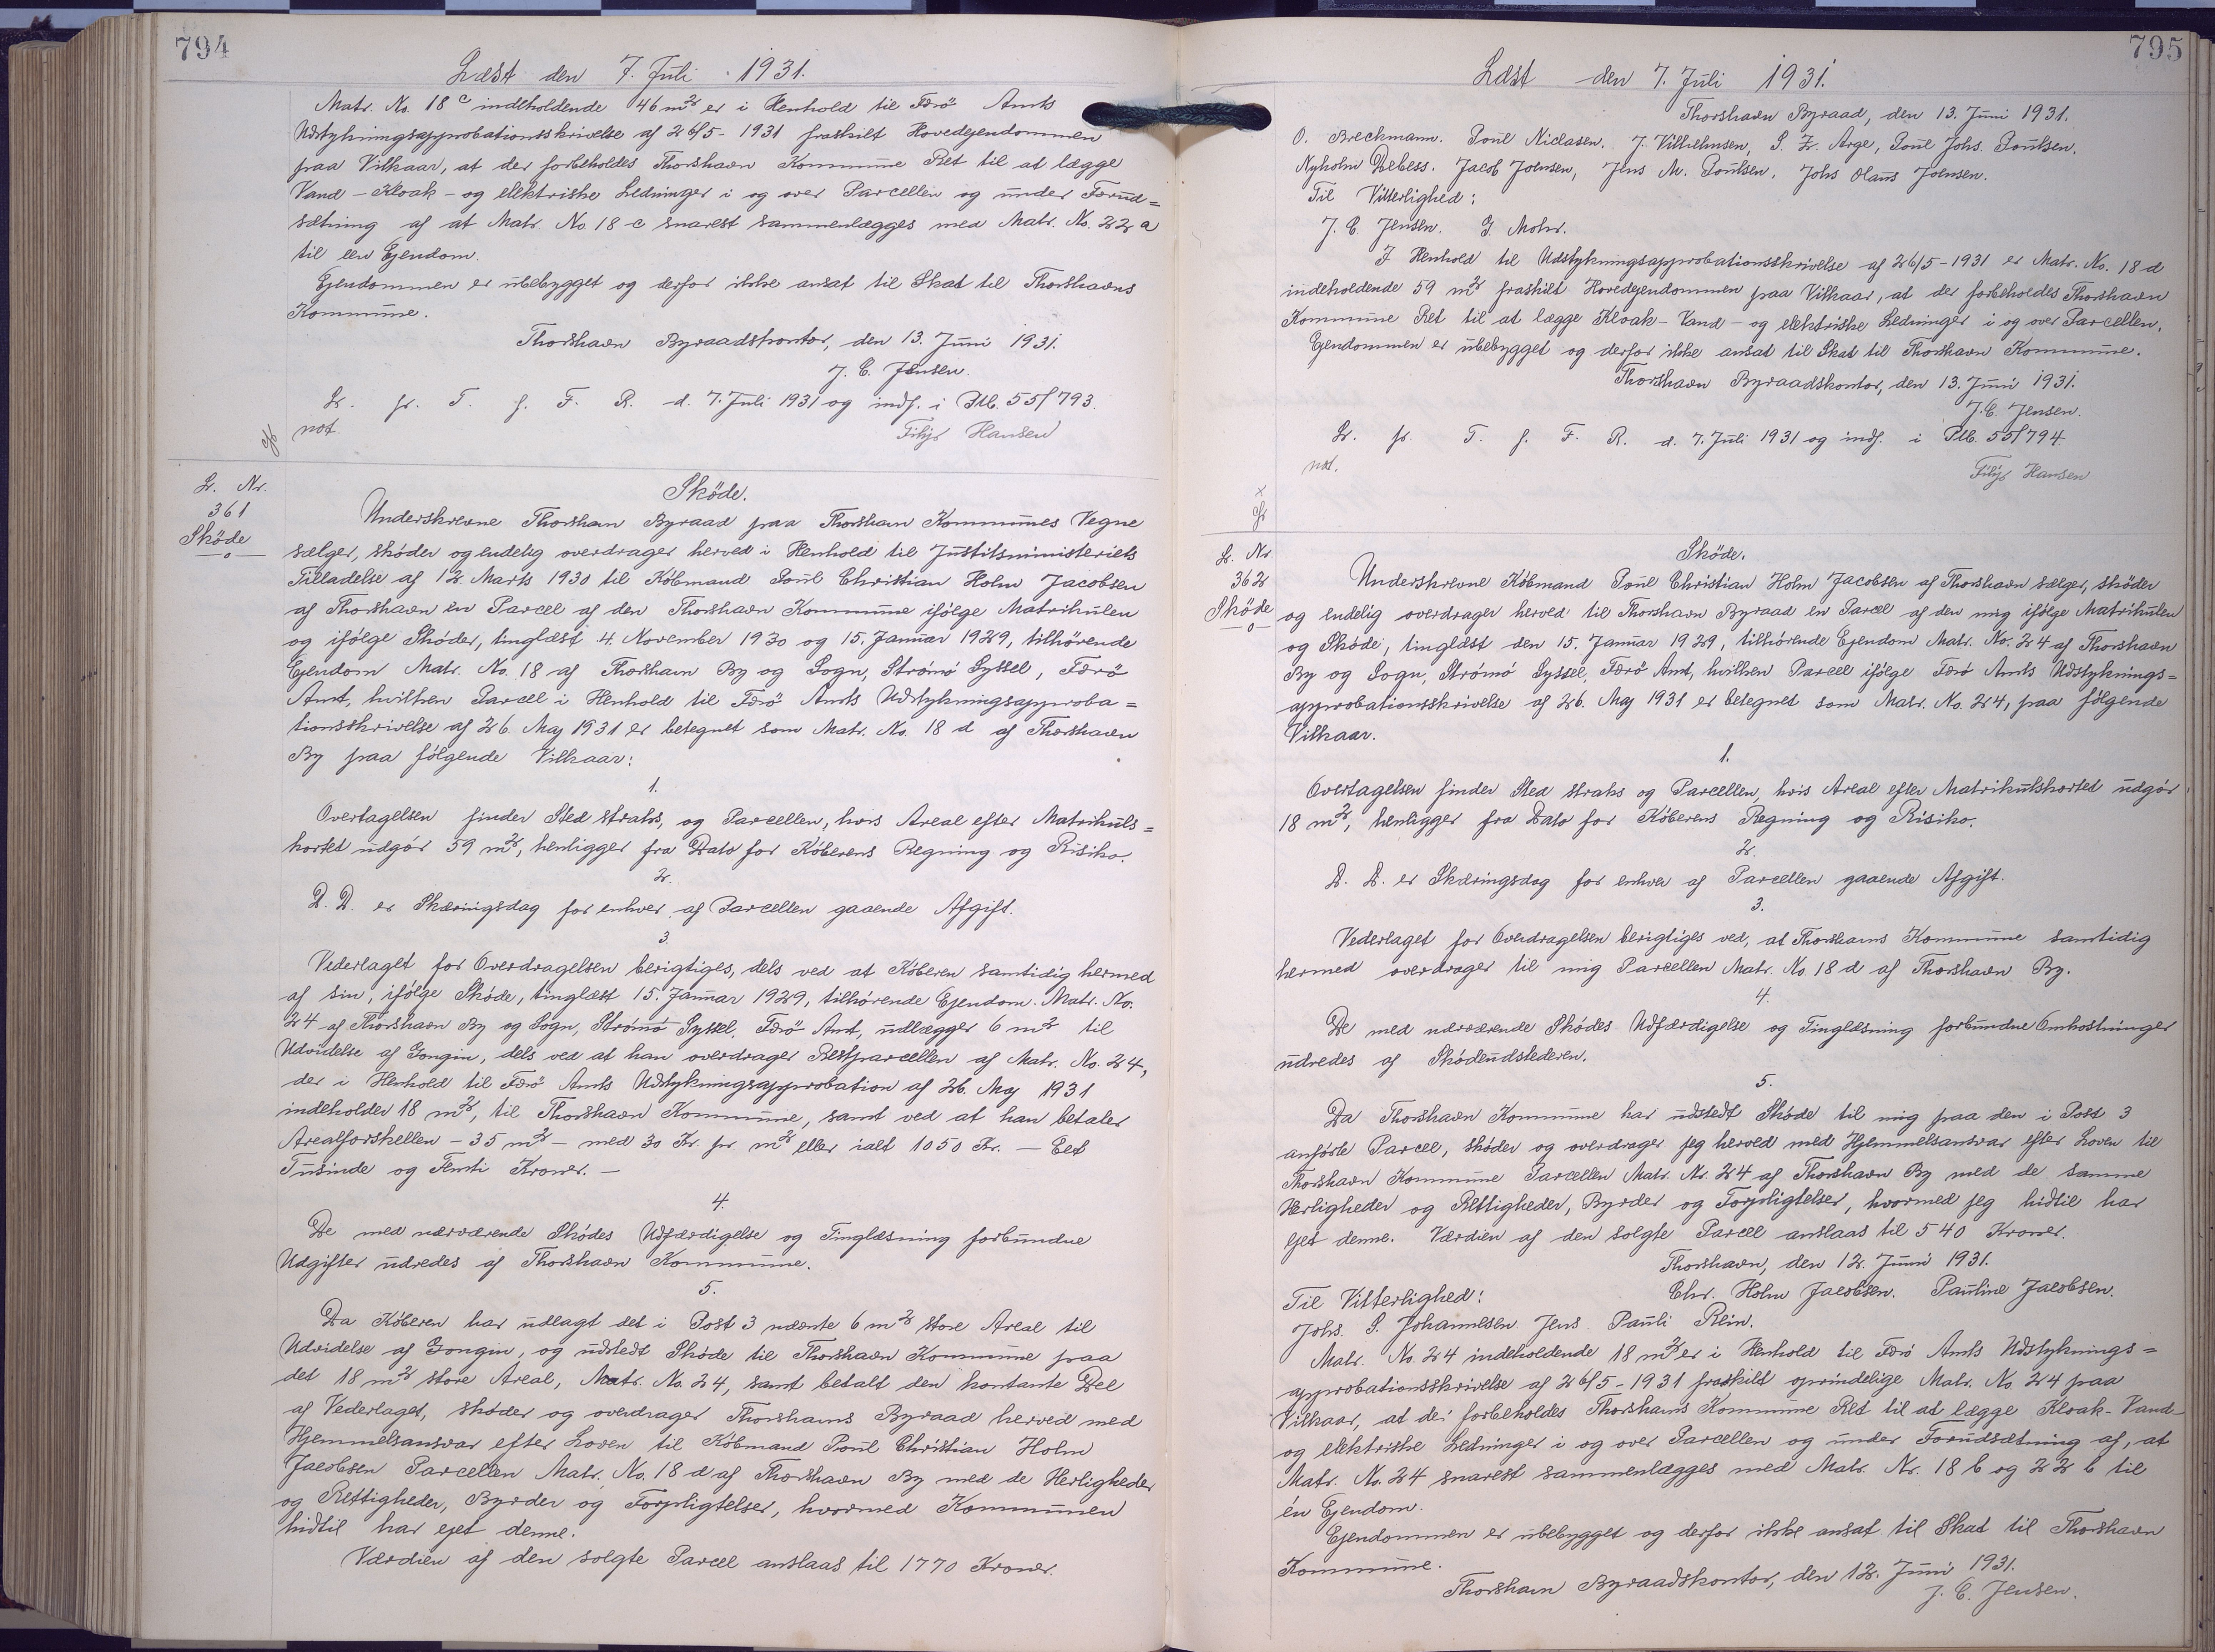 794
Læst den 7. Juli 1931.
Matr. No. 18 c indeholdende 46 m2 er i Henhold til Færö Amts
Udstykningsapprobationsskrivelse af 26/5 - 1931 fraskilt Hovedejendommen
paa Vilkaar, at der forbeholdes Thorshavn Kommune Ret til at lægge
Vand - Kloak - og elektriske Ledninger i og over Parcellen og under Forud=
sætning af at Matr. No. 18 c snarest sammenlægges med Matr. No. 22 a
til een Ejendom.
Ejendommen er ubebygget og derfor ikke ansat til Skat til Thorshavns
Kommune.
Thorshavn Byraadskontor, den 13. Juni 1931.
J. C. Jensen.
L. fr. T. f. F. R. d. 7. Juli 1931 og indf. i Ptb. 55/793.
not.
Filip Hansen
L. Nr.
361
Sköde
Sköde.
Underskrevne Thorshavn Byraad paa Thorshavn Kommunes Vegne
sælger, sköder og endelig overdrager herved i Henhold til Justitsministeriets
Tilladelse af 12. Marts 1930 til Köbmand Poul Christian Holm Jacobsen
af Thorshavn en Parcel af den Thorshavn Kommune ifölge Matrikulen
og ifölge Sköder, tinglæst 4. November 1930 og 15. Januar 1929, tilhörende
Ejendom Matr. No. 18 af Thorshavn By og Sogn, Strömö Syssel, Færö
Amt, hvilken Parcel i Henhold til Færö Amts Udstykningsapproba=
tionsskrivelse af 26. Maj 1931 er betegnet som Matr. No. 18 d af Thorshavn
By paa fölgende Vilkaar:
1.
Overtagelsen finder Sted straks, og Parcellen, hvis Areal efter Matrikuls=
kortet udgör 59 m2, henligger fra Dato for Köberens Regning og Risiko.
2.
D. D. er Skæringsdag for enhver af Parcellen gaaende Afgift.
3.
Vederlaget for Overdragelsen berigtiges, dels ved at Köberen samtidig hermed
af sin, ifölge Sköde, tinglæst 15. Januar 1929, tilhörende Ejendom. Matr. No.
24 af Thorshavn By og Sogn, Strömö Syssel, Færö Amt, udlægger 6 m2 til
Udvidelse af Gongin, dels ved at han overdrager Restparcellen af Matr. No. 24,
der i Henhold til Færö Amts Udstykningsapprobation af 26. Maj 1931
indeholder 18 m2, til Thorshavn Kommune, samt ved at han betaler
Arealforskellen - 35 m2 - med 30 Kr. pr. m2 eller ialt 1050 Kr. - Eet
Tusinde og Femti Kroner. -
4.
De med nærværende Sködes Udfærdigelse og Tinglæsning forbundne
Udgifter udredes af Thorshavn Kommune.
5.
Da Köberen har udlagt det i Post 3 nævnte 6 m2 store Areal til
Udvidelse af Gongin, og udstedt Sköde til Thorshavn Kommune paa
det 18 m2 store Areal, Matr. No. 24, samt betalt den kontante Del
af Vederlaget, sköder og overdrager Thorshavns Byraad herved med
Hjemmelsansvar efter Loven til Köbmand Poul Christian Holm
Jacobsen Parcellen Matr. No. 18 d af Thorshavn By med de Herligheder
og Rettigheder, Byrder og Forpligtelser, hvormed Kommunen
hidtil har ejet denne.
Værdien af den solgte Parcel anslaas til 1770 Kroner.
795
Læst den 7. Juli 1931.
Thorshavn Byraad, den 13. Juni 1931.
O. Breckmann. Poul Niclasen. J. Vilhelmsen, P. Z. Arge, Poul Johs. Poulsen.
Nyholm Debess. Jacob Joensen, Jens M. Poulsen. Johs Olaus Joensen.
Til Vitterlighed:
J. C. Jensen. G. Mohr.
I Henhold til Udstykningsapprobationsskrivelse af 26/5 - 1931 er Matr. No. 18 d
indeholdende 59 m2 fraskilt Hovedejendommen paa Vilkaar, at der forbeholdes Thorshavn
Kommune Ret til at lægge Kloak - Vand - og elektriske Ledninger i og over Parcellen.
Ejendommen er ubebygget og derfor ikke ansat til Skat til Thorshavn Kommune.
Thorshavn Byraadskontor, den 13. Juni 1931.
J. C. Jensen.
L. fr. T. f. F. R. d. 7. Juli 1931 og indf. i Ptb. 55/794.
not.
Filip Hansen
L. Nr
362
Sköde
Sköde.
Underskrevne Köbmand Poul Christian Holm Jacobsen af Thorshavn sælger, sköder
og endelig overdrager herved til Thorshavn Byraad en Parcel af den mig ifölge Matrikulen
og Sköde, tinglæst den 15. Januar 1929, tilhörende Ejendom Matr. No. 24 af Thorshavn
By og Sogn, Strömö Syssel, Færö Amt, hvilken Parcel ifölge Færö Amts Udstyknings=
approbationsskrivelse af 26. Maj 1931 er betegnet som Matr. No. 24, paa fölgende
Vilkaar.
1.
Overtagelsen finder Sted straks og Parcellen, hvis Areal efter Matrikulskortet udgör
18 m2, henligger fra Dato for Köberens Regning og Risiko.
2.
D. D. er Skæringsdag for enhver af Parcellen gaaende Afgift.
3.
Vederlaget for Overdragelsen berigtiges ved, at Thorshavns Kommune samtidig
hermed overdrager til mig Parcellen Matr. No. 18 d af Thorshavn By.
4.
De med nærværende Sködes Udfærdigelse og Tinglæsning forbundne Omkostninger
udredes af Sködeudstederen.
5.
Da Thorshavn Kommune har udstedt Sköde til mig paa den i Post 3
anförte Parcel, sköder og overdrager jeg herved med Hjemmelsansvar efter Loven til
Thorshavn Kommune Parcellen Matr. Nr. 24 af Thorshavn By med de samme
Herligheder og Rettigheder, Byrder og Forpligtelser, hvormed jeg hidtil har
ejet denne. Værdien af den solgte Parcel anslaas til 540 Kroner.
Thorshavn, den 12. Juni 1931.
Til Vitterlighed:
Chr. Holm Jacobsen. Pauline Jacobsen.
Johs. P. Johannesen. Jens Pauli Rein.
Matr. No. 24 indeholdende 18 m2 er i Henhold til Færö Amts Udstyknings=
approbationsskrivelse af 26/5 - 1931 fraskilt oprindelige Matr. No. 24 paa
Vilkaar, at der forbeholdes Thorshavns Kommune Ret til at lægge Kloak - Vand -
og elektriske Ledninger i og over Parcellen og under Forudsætning af, at
Matr. No. 24 snarest sammenlægges med Matr. Nr. 18 b og 22 b til
én Ejendom.
Ejendommen er ubebygget og derfor ikke ansat til Skat til Thorshavn
Kommune.
Thorshavn Byraadskontor, den 12. Juni 1931.
J. C. Jensen.